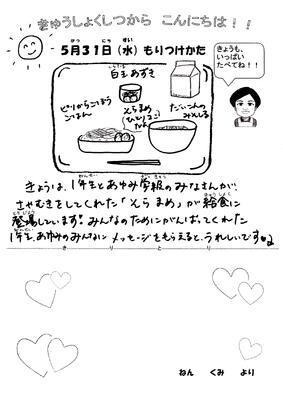 きゅうしょくしつから こんにちは！！
5月31日（水）もりつけかた
きょうも、
いっぱい
たべてね！！
白玉あずき
ピリからごぼう
ごはん
そらまめ
ひとりこ
だいこんの
みそしる
きょうは、1年生とあゆみ学級のみなさんが、
さやむきをしてくれた「そらまめ」が給食に
登場しています！みんなのためにがんばってくれた
1年生、あゆみのみんなに メッセージをもらえると、うれしいです
きりとり
ねん くみ より